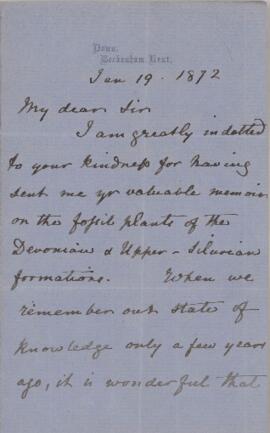 Down.
Beckenham Kent.
Jan 19. 1872
My dear Sir
I am greatly indebted
to your kindness for having
sent me yr valuable memoir
on the fossil plants of the
Devonian & Upper-Silurian
formations. When we
remember our state of
knowledge only a few years
ago, it is wonderful that